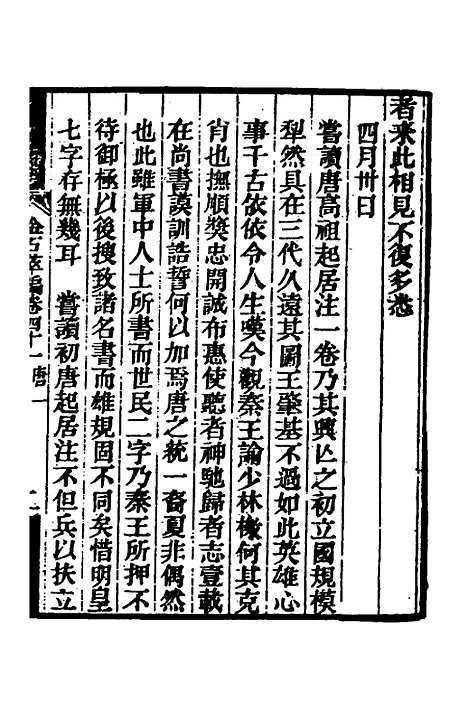 者來此相見不復多悉
四月卅日
嘗讀唐高祖起居注一卷乃其興亾之初立國規模
犁然具在三代久遠其圖王肇基不過如此英雄心
事千古依依令人生嘆今觀秦王諭少林檄何其克
肖也撫順獎忠開誠布惠使聽者神馳歸者志壹載
在尚書謨訓誥誓何以加焉唐之統一裔夏非偶然
也此雖軍中人士所書而世民二字乃秦王所押不
待御極以後搜致諸名書而雄規固不同矣惜明皇
七字存無幾耳 嘗讀初唐起居注不但兵以扶立
金石萃編卷四十一 唐一